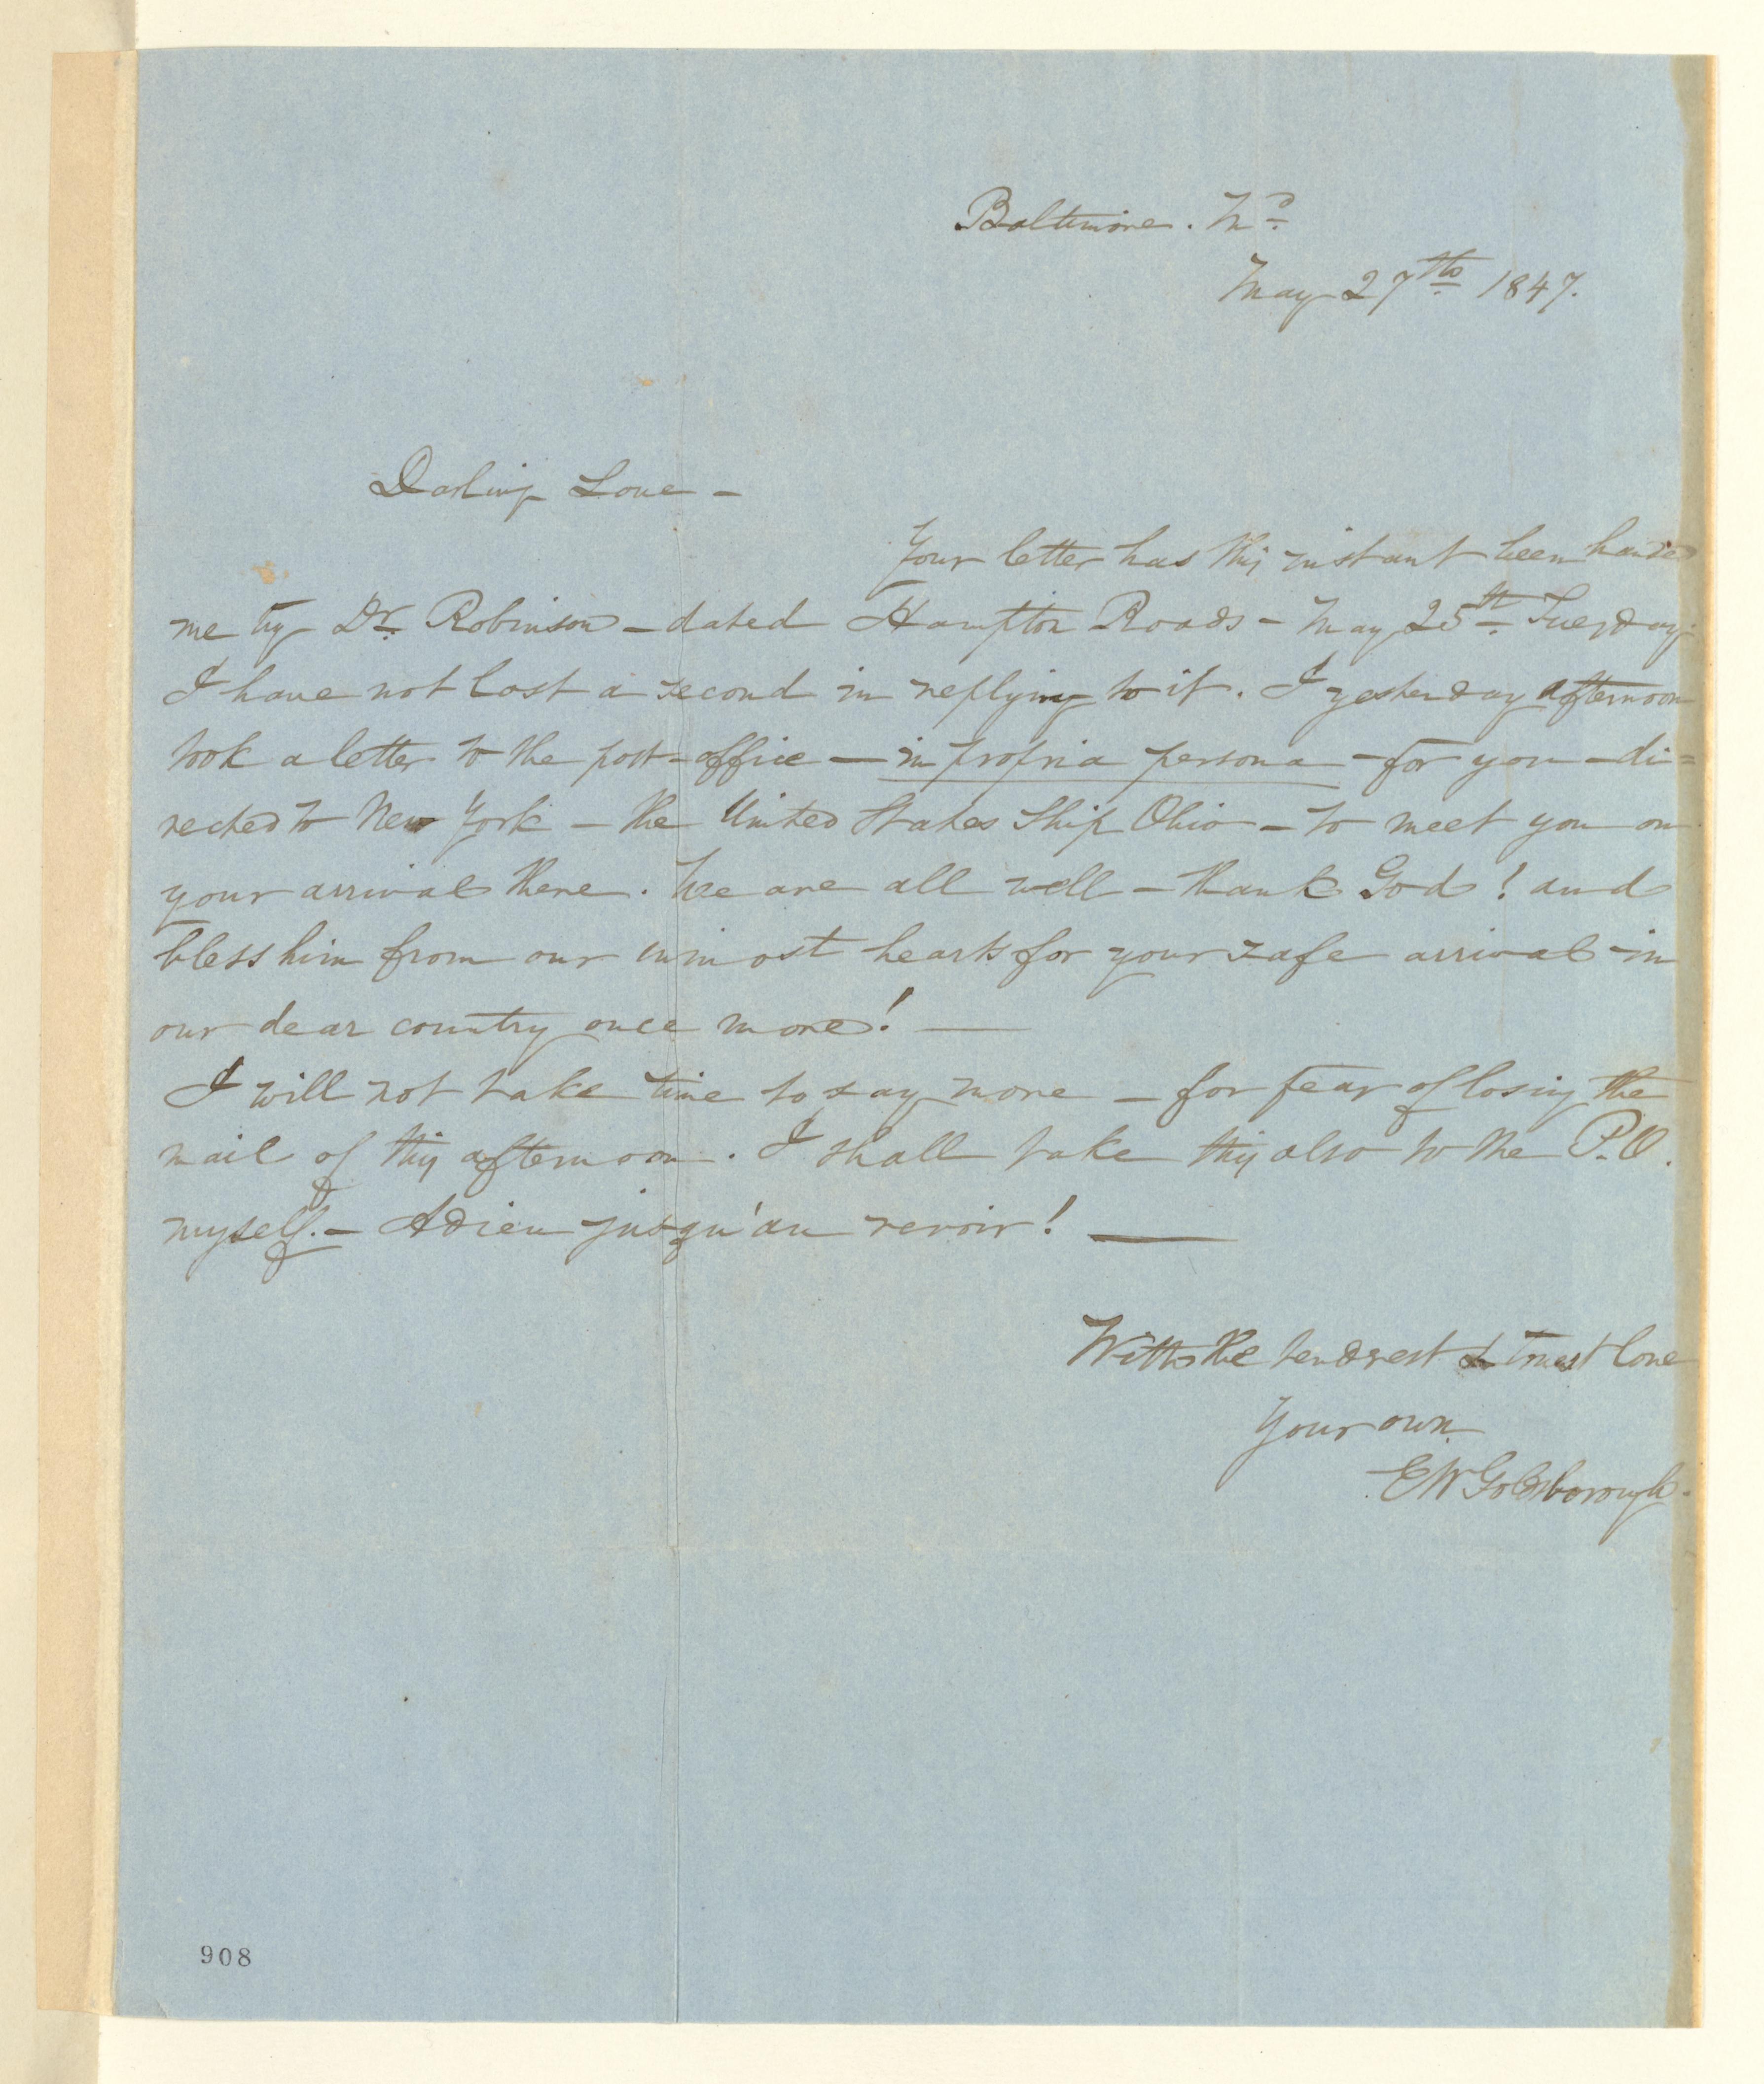 Baltimore. Md
May 27th 1847.
Darling Love -
Your letter has this instant been handed
me by Dr. Robinson - dated Hampton Roads - May 25th Tuesday.
I have not lost a second in replying to it. I yesterday afternoon
took a letter to the post-office - in propria persona - for you - di=
rected to New York - the United States Ship Ohio - to meet you on
your arrival there. We are all well - thank God! and
bless him from our inmost hearts for your safe arrival in
our dear country once more! -
I will not take time to say more - for fear of losing the
mail of this afternoon. I shall take this also to the P.O.
myself. - Adieu jusqu'au revoir! -
With the tenderest & truest love
Your own
E W Goldsborough.
908